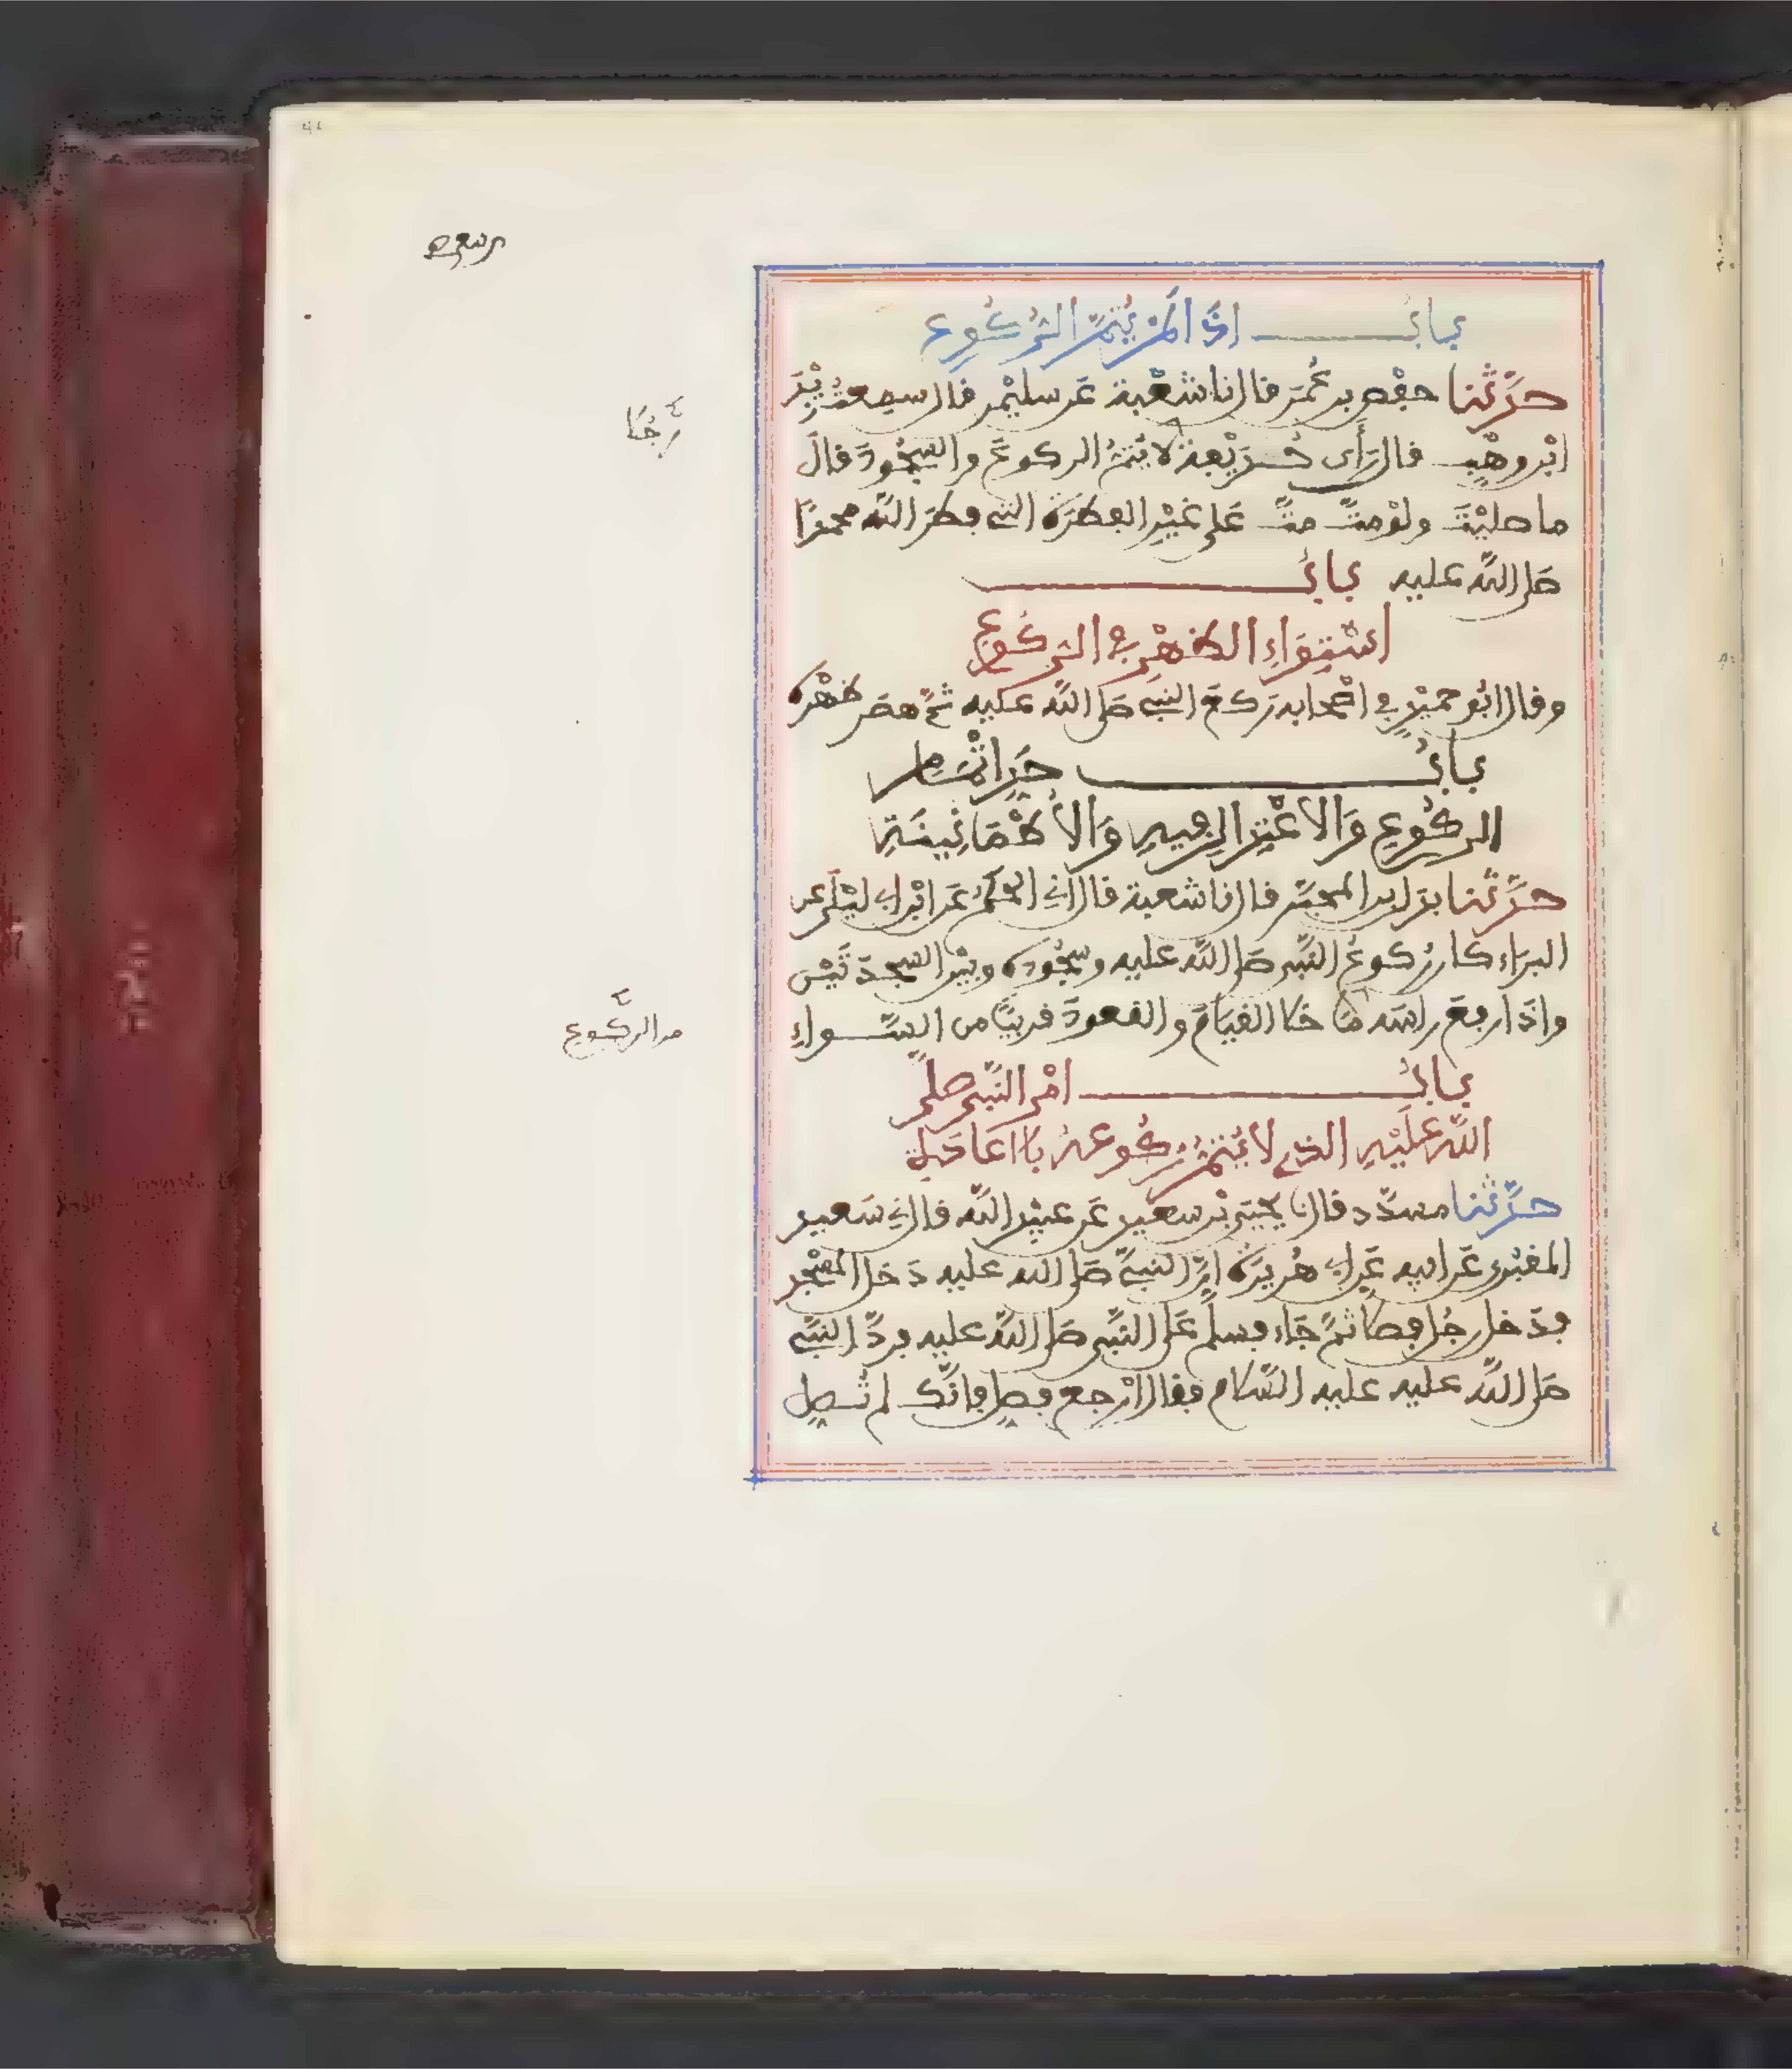 باب اذا لم يتم الركوع
حدثنا حفص بن عمر قال نا شعبة عن سليمن قال سمعت زيد
ابن وهب قال رأى حذيفة لا يتم الركوع والسجود قال
رجلا
ما صليت ولو مت مت على غير الفطرة التي فطر الله محمدا
صلى الله عليه باب
استواء الظهر في الركوع
وقال ابو حميد في اصحابه ركع النبي صلى الله عليه ثم هصر ظهره
باب حد اتمام
الركوع والاعتدال فيه والاطمانينة
حدثنا بدل بن المحبر قال نا شعبة قال اني الحكم عن ابن ابي ليلى عن
البراء كان ركوع النبي صلى الله عليه وسجوده وبين السجدتين
واذا رفع راسه ما خلا القيام والقعود قريبا من السواء
من الركوع
باب امر النبي صلى
الله عليه الذي لا يتم ركوعه بالاعادة
حدثنا مسدد قال نا يحيى بن سعيد عن عبيد الله قال ني سعيد
المقبري عن ابيه عن ابي هريرة ان النبي صلى الله عليه دخل المسجد
فدخل رجل فصلى ثم جاء فسلم على النبي صلى الله عليه فرد النبي
صلى الله عليه عليه السلام فقال ارجع فصل فانك لم تصل